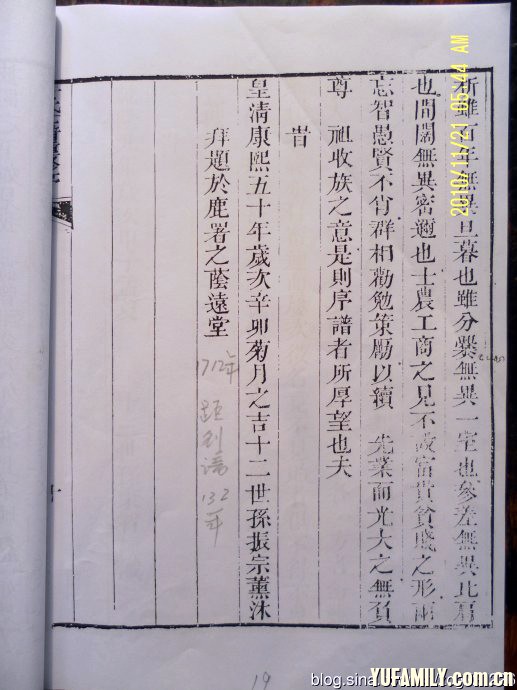 析雖百年無異旦暮也雖分爨無異一室也參差無異比肩
也間闊無異密邇也士農工商之見不設富貴貧賤之形兩
忘智愚賢不肖群相勸勉策勵以續 先業而光大之無負
尊 祖收族之意是則序譜者所厚望也夫
昔
皇清康熙五十年歲次辛卯菊月之吉十二世孫振宗薰沐
拜題於鹿署之蔭遠堂
1712年
132年
十
19
2010/11/21 05:44 AM
blog.sina
YUFAMILY.com.cn